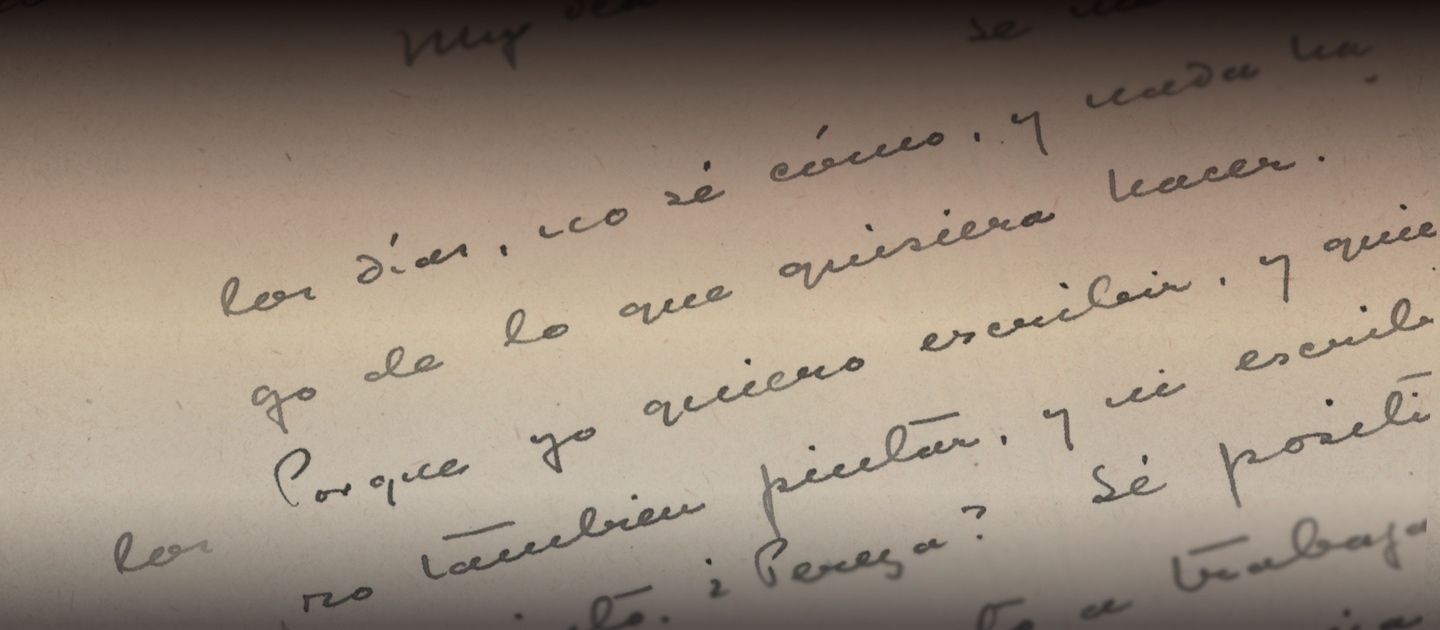 My se
los días, no sé cómo, y nada ha
go de lo que quisiera hacer.
Porque yo quiero escribir, y quie
los ro tambien pintar, y ni escrib
¿Pereza? Sé positi
a trabaja